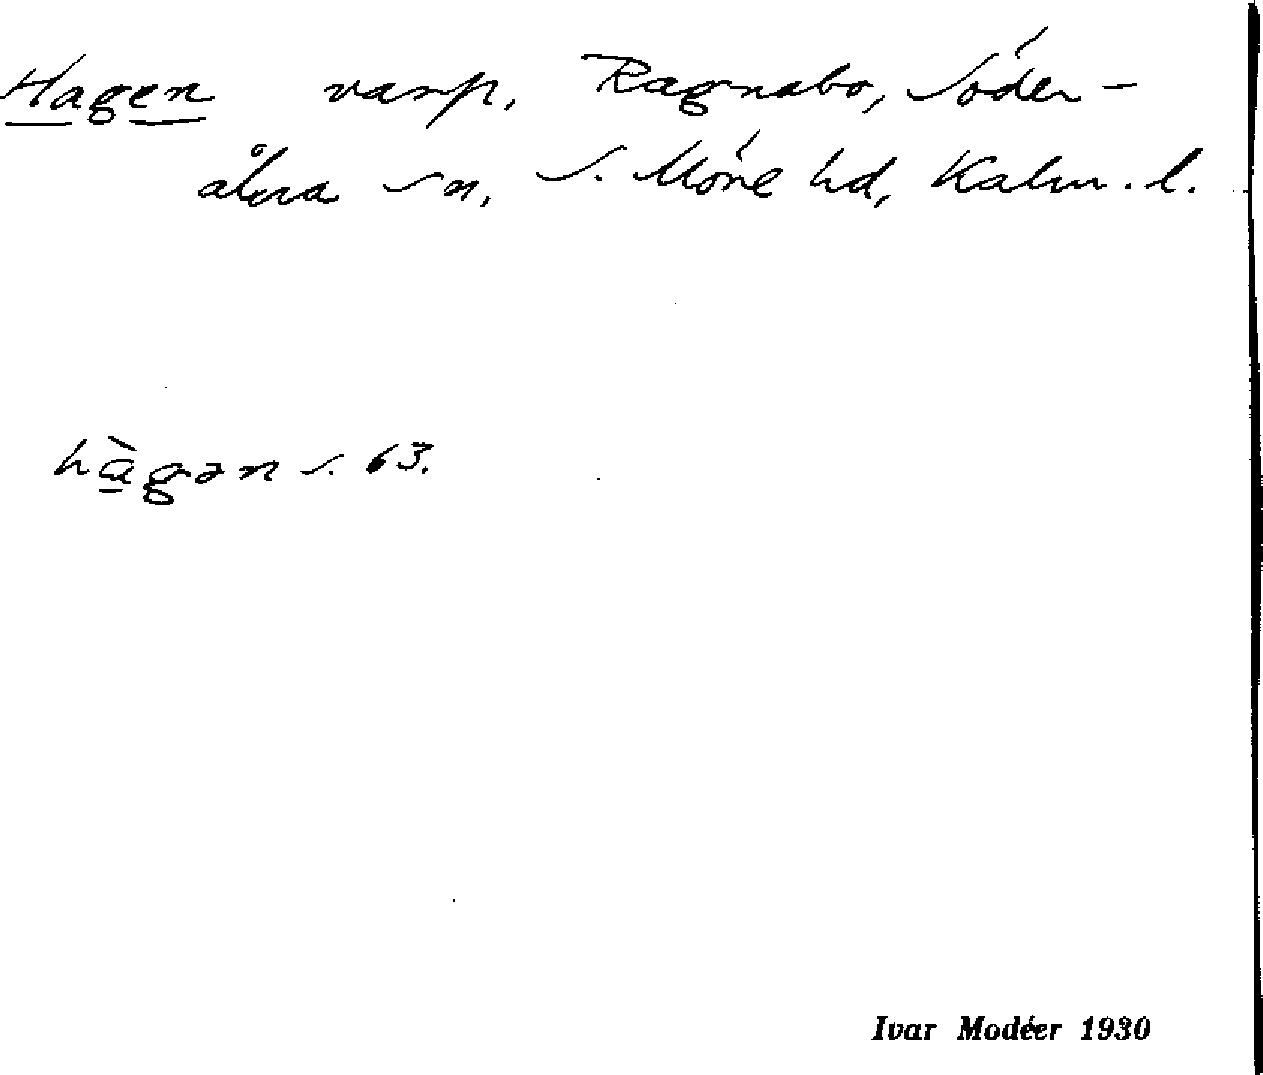 Hagen varp, Ragnabo, Söder-
åkra sn, S. Möre hd, Kalm. l.
hàgən s. 63.
Ivar Modéer 1930